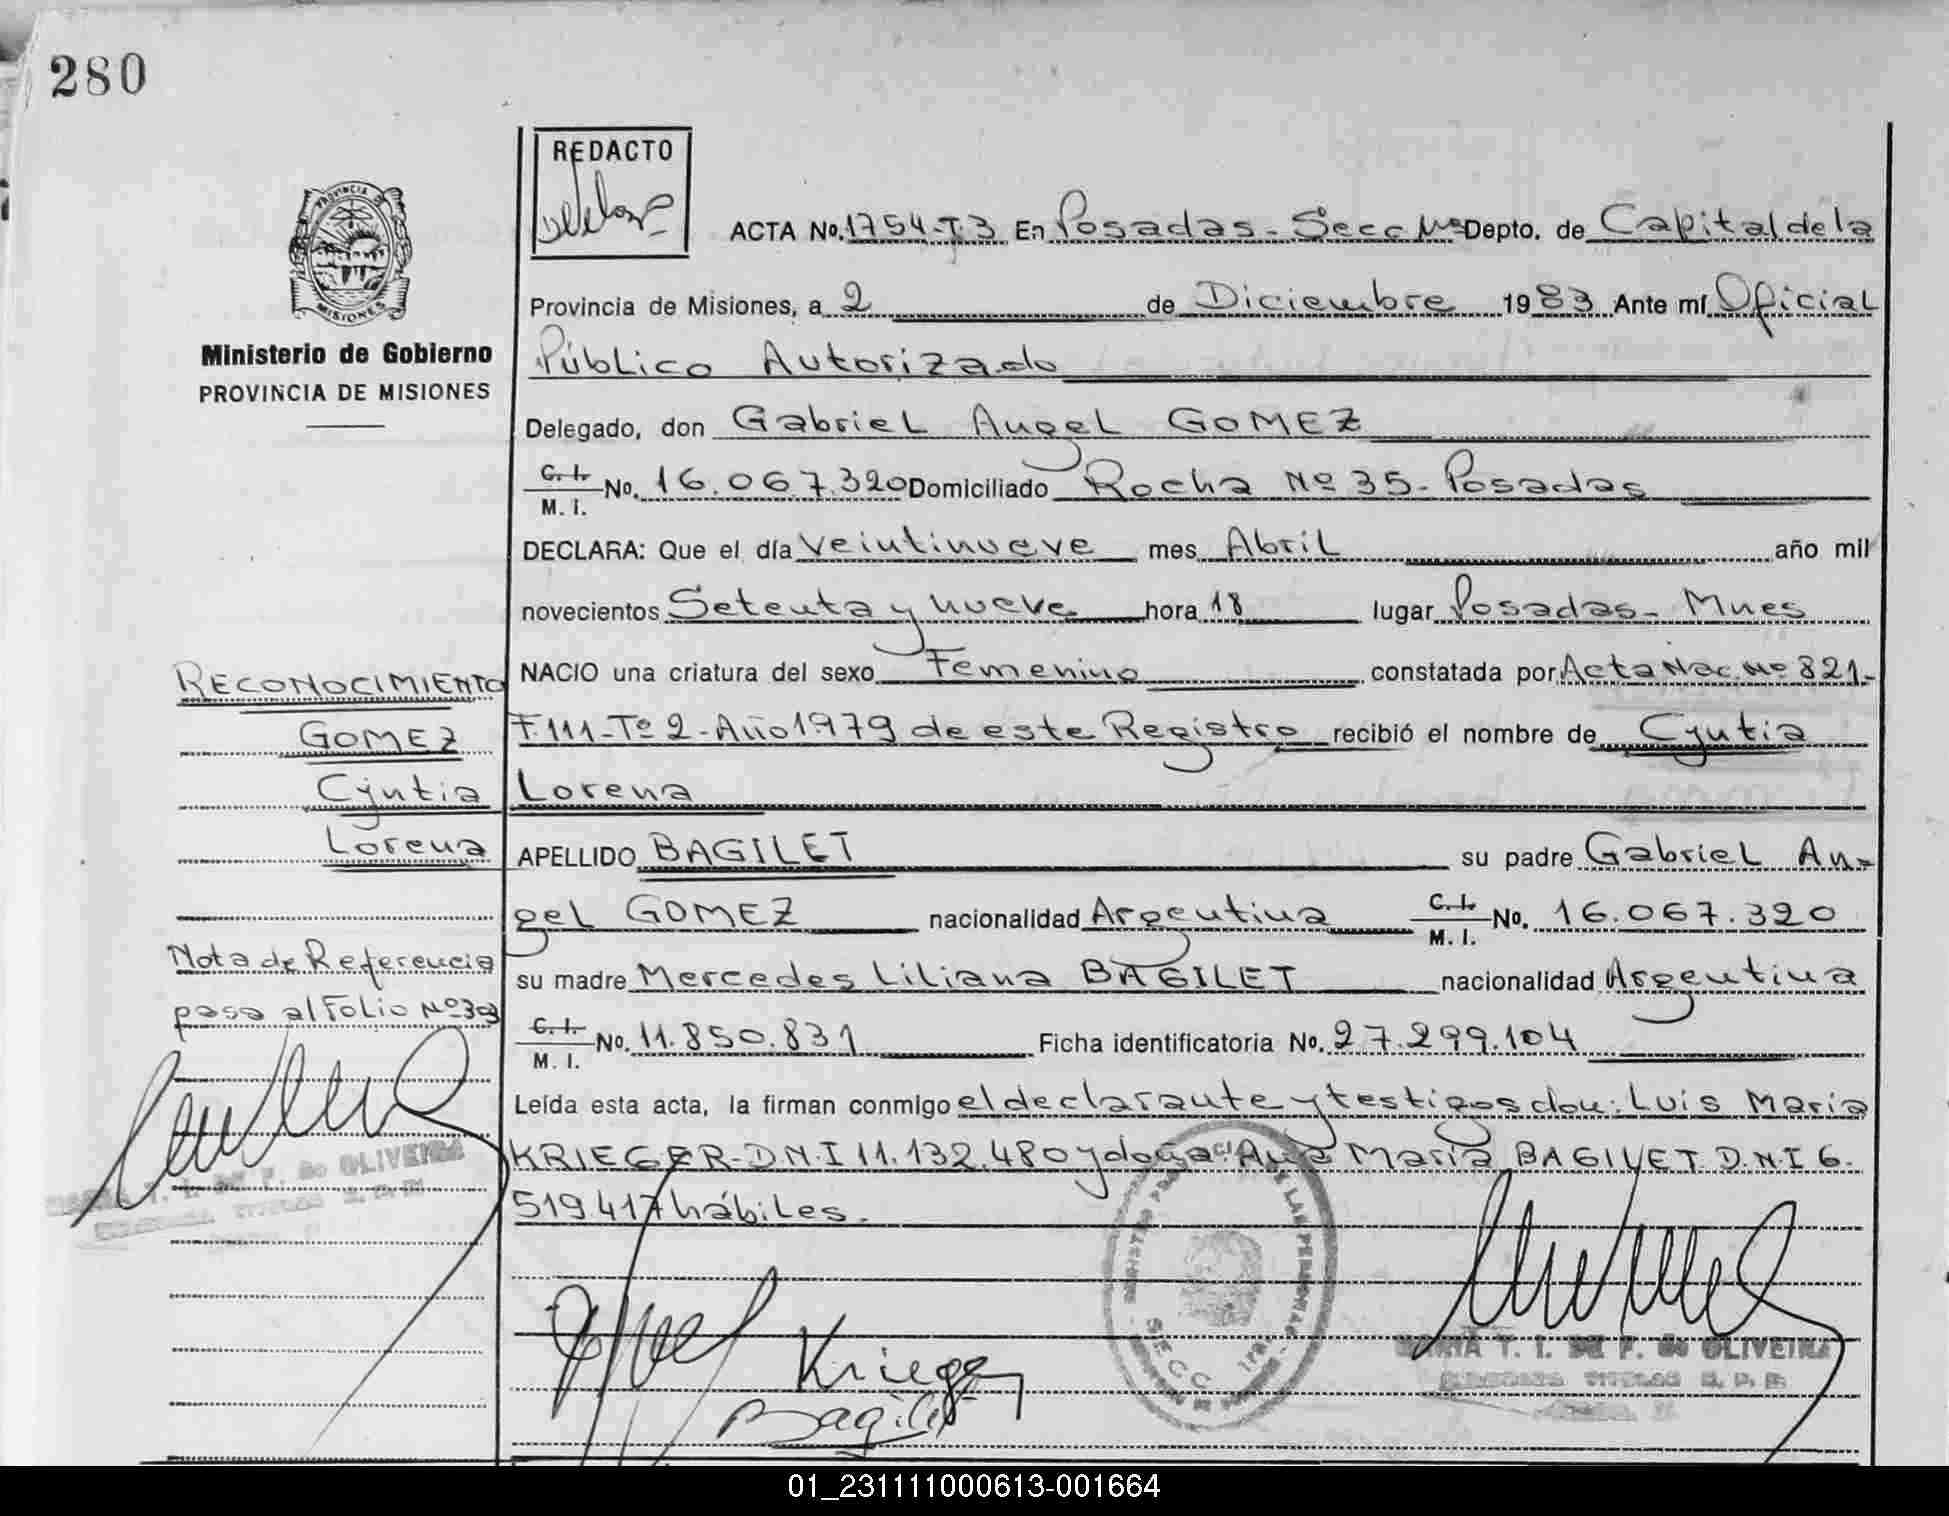 280
REDACTO
PROVINCIA
MISIONES
ACTA No. 1754-T.3 En Posadas - Secc Mª Depto. de Capital de la
Provincia de Misiones, a 2 de Diciembre 1983 Ante mí Oficial
Ministerio de Gobierno
PROVINCIA DE MISIONES
Público Autorizado
Delegado, don Gabriel Angel GOMEZ
C. I.
M. I. No. 16.067.320 Domiciliado Rocha Nº 35 - Posadas
DECLARA: Que el día veintinueve mes Abril año mil
novecientos Setenta y nueve hora 18 lugar Posadas - Mnes
NACIO una criatura del sexo Femenino constatada por Acta Nac. Nº 821-
RECONOCIMIENTO
F. 111 - Tº 2 - Año 1979 de este Registro recibió el nombre de Cyntia
GOMEZ
Cyntia
Lorena
Lorena
APELLIDO BAGILET su padre Gabriel An-
gel GOMEZ nacionalidad Argentina C. I. M. I. No. 16.067.320
Nota de Referencia
pasa al Folio Nº
su madre Mercedes Liliana BAGILET nacionalidad Argentina
C. I.
M. I. No. 11.850.831 Ficha identificatoria No. 27.299.104
Leída esta acta, la firman conmigo el declarante y testigos don: Luis María
KRIEGER - D.N.I 11.132.480 y doña: Ana María BAGILET D.N.I 6.
519.417 hábiles.
MARIA T. I. DE F. de OLIVEIRA
Krieger
Bagilet
SECC
DE LAS PERSONAS
MARIA T. I. DE F. de OLIVEIRA
01_231111000613-001664